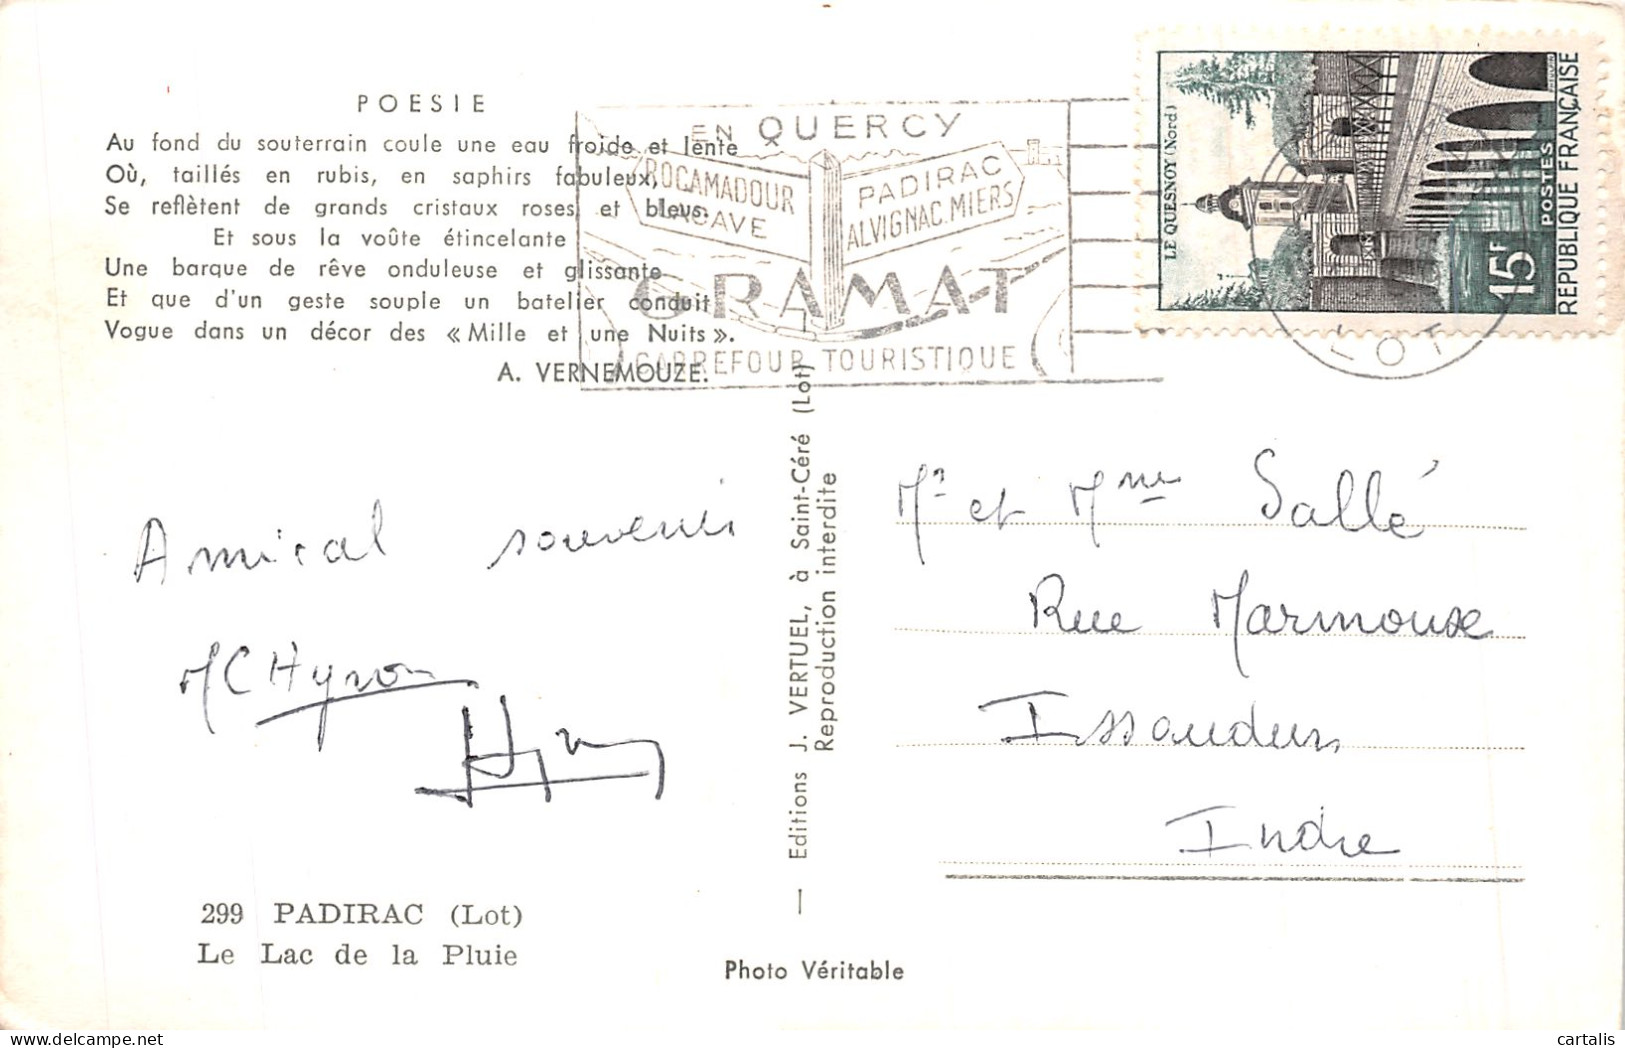 POESIE
Au fond du souterrain coule une eau froide et lente
Où, taillés en rubis, en saphirs fabuleux,
Se reflètent de grands cristaux roses et bleus.
Et sous la voûte étincelante
Une barque de rêve onduleuse et glissante
Et que d'un geste souple un batelier conduit
Vogue dans un décor des « Mille et une Nuits ».
A. VERNEMOUZE.
EN QUERCY
ROCAMADOUR
LACAVE
PADIRAC
ALVIGNAC.MIERS
GRAMAT
CARREFOUR TOURISTIQUE
LE QUESNOY (Nord)
15F
POSTES
REPUBLIQUE FRANÇAISE
LOT
Amical souvenir
MC Hyron
Editions J. VERTUEL, à Saint-Céré (Lot)
Reproduction interdite
Mr et Mme Sallé
Rue Marmouse
Issoudun
Indre
299 PADIRAC (Lot)
Le Lac de la Pluie
Photo Véritable
cartalis
delcampe.net